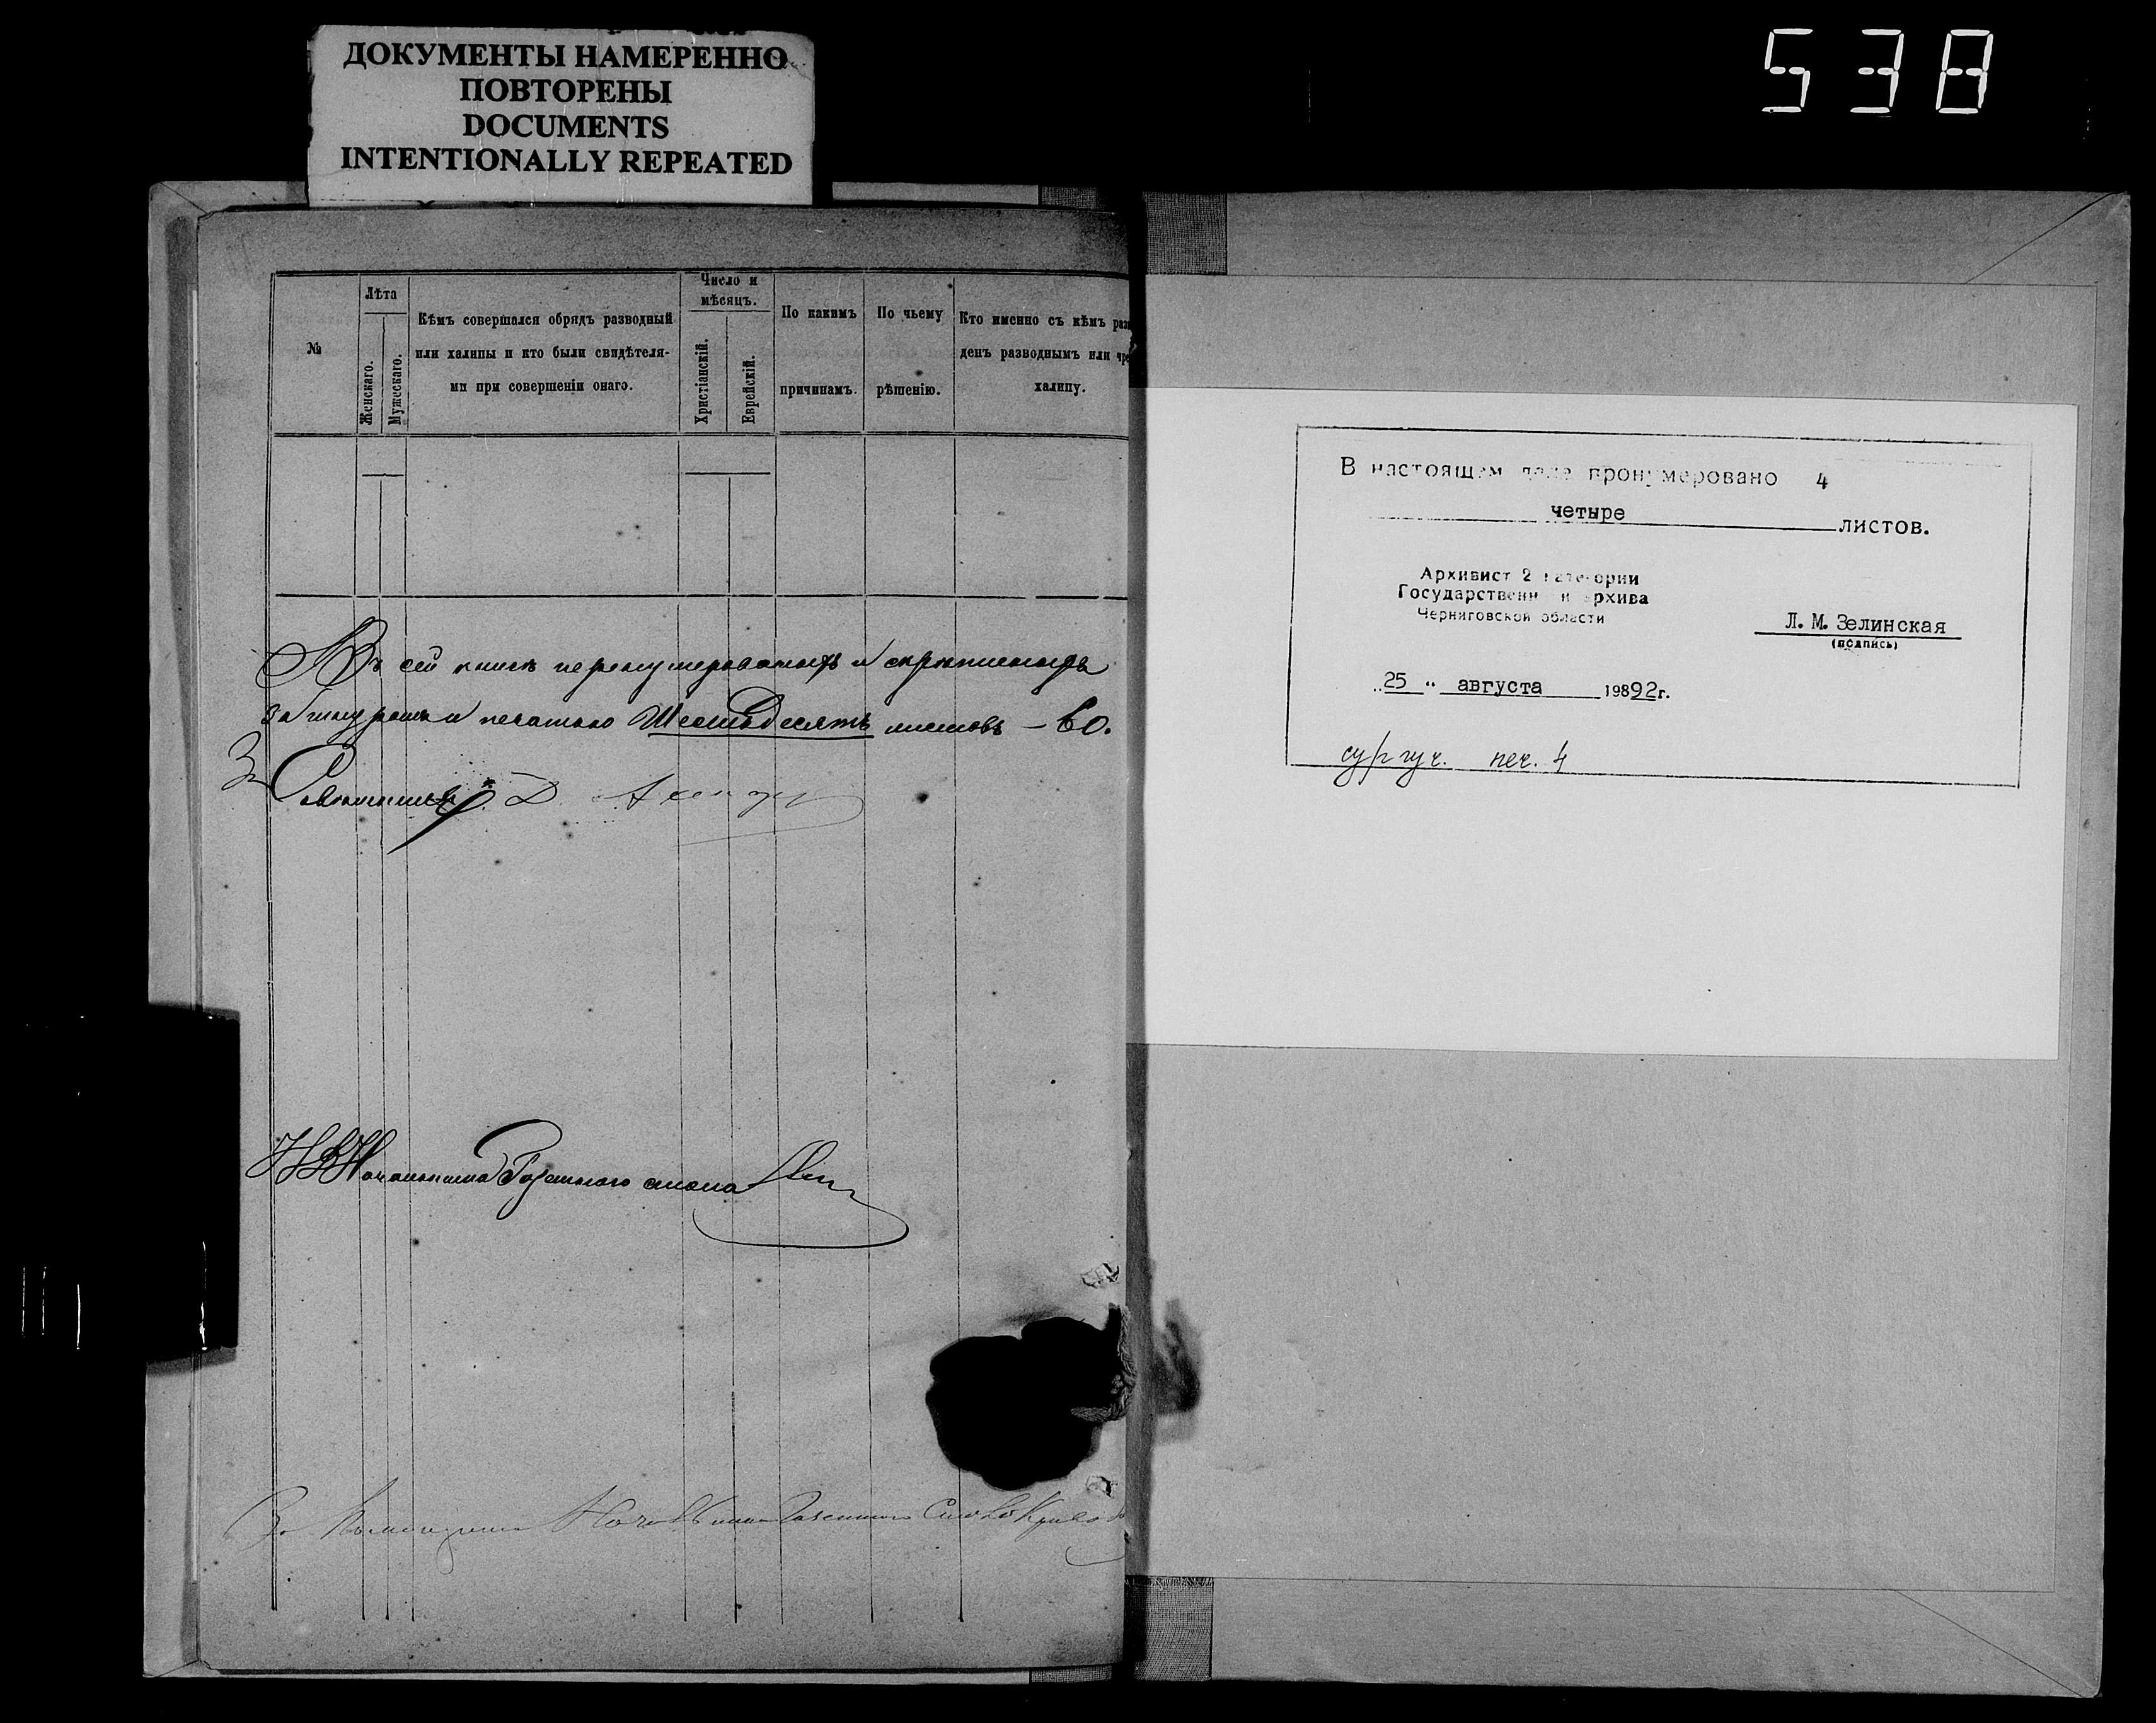 ДОКУМЕНТЫ НАМЕРЕННО
ПОВТОРЕНЫ
DOCUMENTS
INTENTIONALLY REPEATED
538
№
Лѣта
Женскаго.
Мужескаго.
Кѣмъ совершался обрядъ разводный
или халицы и кто были свидѣтеля-
ми при совершеніи онаго.
Число и
мѣсяцъ.
Христіанскій.
Еврейскій.
По какимъ
причинамъ.
По чьему
рѣшенію.
Кто именно съ кѣмъ раз
денъ разводнымъ или чре
халицу.
Въ сей книгѣ перенумерованныхъ и скрѣпленныхъ
за шнуромъ и печатью Шестьдесятъ листовъ – 60.
За
Начальника Казеннаго стола
За
В настоящем деле пронумеровано 4
четыре листов.
Архивист 2 категории
Государственн архива
Черниговской области
Л. М. Зелинская
(подпись)
„25 " августа 19892г.
сургуч. печ. 4